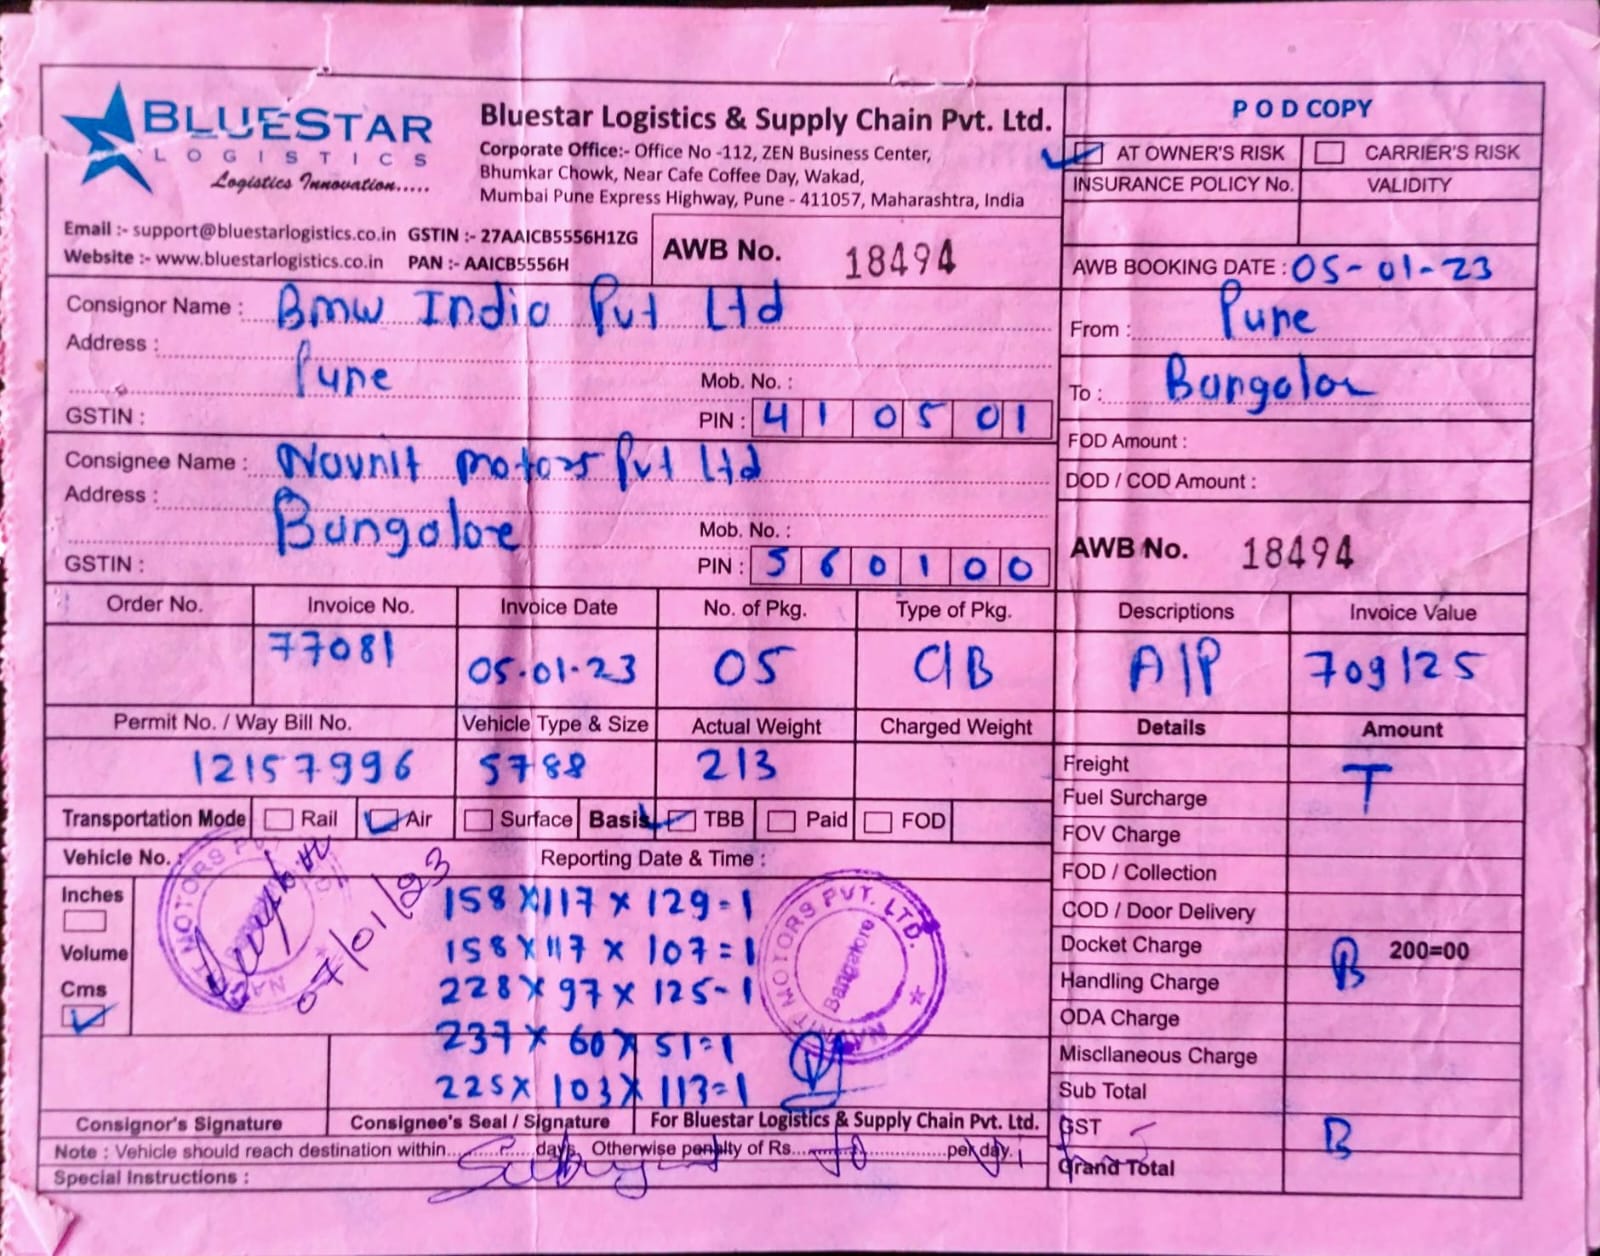 BLUESTAR
LOGISTICS
Logistics Innovation.....
Bluestar Logistics & Supply Chain Pvt. Ltd.
Corporate Office:- Office No -112, ZEN Business Center,
Bhumkar Chowk, Near Cafe Coffee Day, Wakad,
Mumbai Pune Express Highway, Pune - 411057, Maharashtra, India
Email :- support@bluestarlogistics.co.in GSTIN :- 27AAICB5556H1ZG
Website :- www.bluestarlogistics.co.in PAN :- AAICB5556H
AWB No. 18494
P O D COPY
AT OWNER'S RISK CARRIER'S RISK
INSURANCE POLICY No. VALIDITY
AWB BOOKING DATE : 05-01-23
Consignor Name : Bmw India Pvt Ltd
Address :
Pune
Mob. No. :
GSTIN :
PIN : 410501
From : Pune
To : Bangalor
Consignee Name : Navnit motors Pvt Ltd
Address :
Bangalore
Mob. No. :
GSTIN :
PIN : 560100
FOD Amount :
DOD / COD Amount :
AWB No. 18494
Order No. Invoice No. Invoice Date No. of Pkg. Type of Pkg. Descriptions Invoice Value
77081 05.01.23 05 C/B A/P 709125
Permit No. / Way Bill No. Vehicle Type & Size Actual Weight Charged Weight Details Amount
12157996 5788 213
Transportation Mode Rail Air Surface Basis TBB Paid FOD
Vehicle No. : Reporting Date & Time :
Inches
Volume
Cms
158 X 117 x 129 = 1
158 X 117 x 107 = 1
228 X 97 x 125 - 1
237 x 60 x 51 = 1
225 x 103 x 113 = 1
07/01/23
MOTORS PVT.
NAVNIT MOTORS PVT. LTD.
Bangalore
Freight T
Fuel Surcharge
FOV Charge
FOD / Collection
COD / Door Delivery
Docket Charge B 200=00
Handling Charge
ODA Charge
Miscllaneous Charge
Sub Total
GST B
Grand Total
Consignor's Signature Consignee's Seal / Signature For Bluestar Logistics & Supply Chain Pvt. Ltd.
Note : Vehicle should reach destination within days. Otherwise penalty of Rs. per day.
Special Instructions :